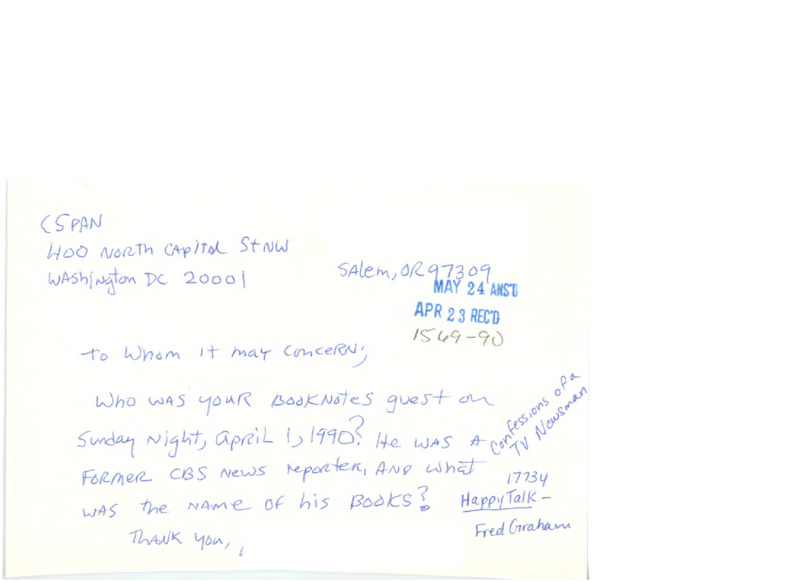 CSPAN
400 North Capitol St NW
Washington DC 20001
Salem, OR 97309
MAY 24 ANS'D
APR 23 REC'D
1569-90
To Whom it may concern;
Who was your Booknotes guest on
Sunday Night, April 1, 1990? He was a
former CBS News reporter, and what
was the name of his books?
Thank you,
Confessions of a
TV Newsman
17734
Happy Talk -
Fred Graham